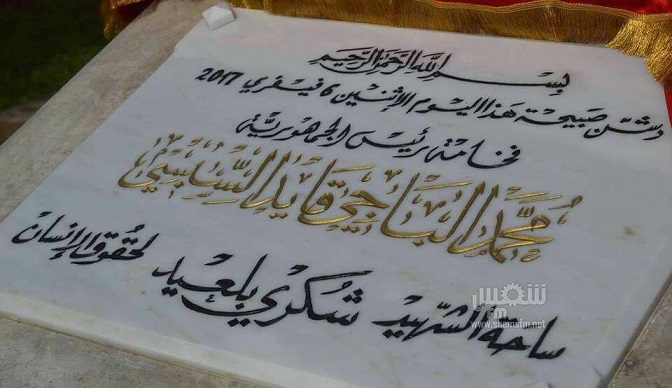 بسم الله الرحمن الرحيم
دشّن صبيحة هذا اليوم الإثنين 6 فيفري 2017
فخامة رئيس الجمهورية
محمّد الباجي قايد السّبسي
ساحة الشّهيد شكري بلعيد لحقوق الإنسان
شمس
fm
www.shemsfm.net